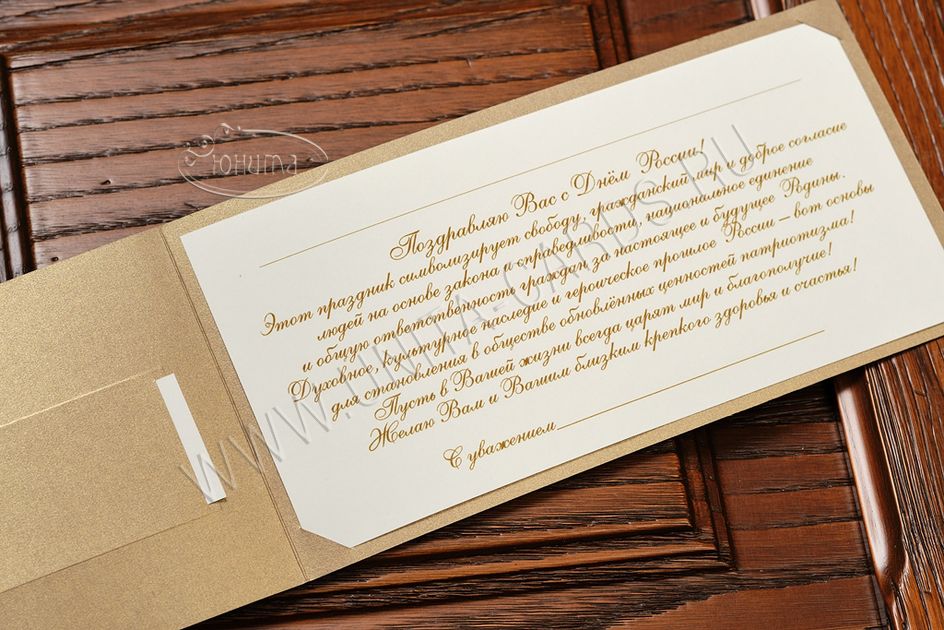 Юнита
Поздравляю Вас с Днём России!
Этот праздник символизирует свободу, гражданский мир и доброе согласие
людей на основе закона и справедливости, национальное единение
и общую ответственность граждан за настоящее и будущее Родины.
Духовное, культурное наследие и героическое прошлое России – вот основы
для становления в обществе обновлённых ценностей патриотизма!
Пусть в Вашей жизни всегда царят мир и благополучие!
Желаю Вам и Вашим близким крепкого здоровья и счастья!
С уважением
WWW.UNITA-CARDS.RU